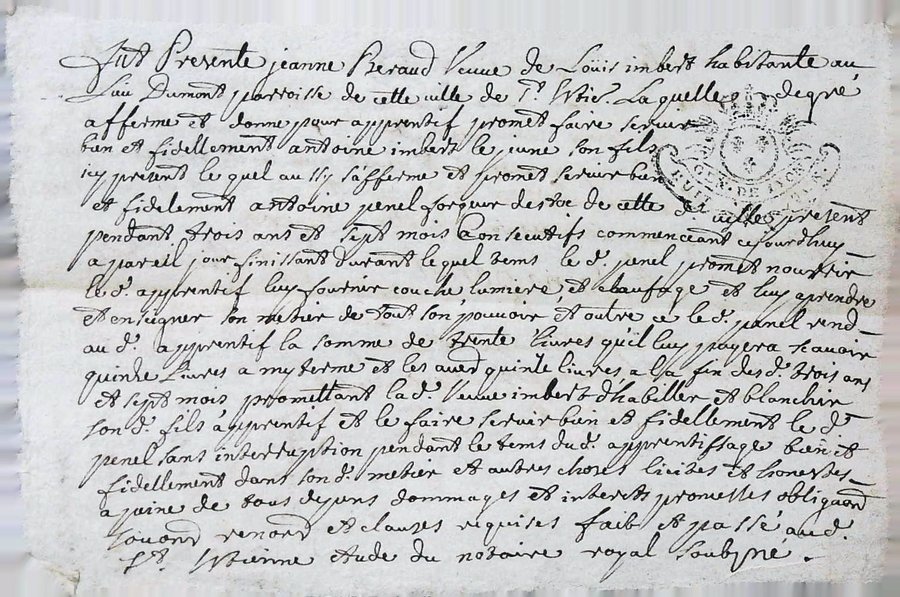 fut Presente jeanne Beraud Veuve de Loüis imbert habitante au
Lieu Dumont parroisse de cette ville de St. Etie. Laquelle degré
afferme et donne pour apprentif promet faire servir
bien et fidellement antoine imbert le jeune son fils
icy present le quel aussy safferme et promet servir bien
et fidelement antoine penel forgeur de cette ville present
pendant trois ans et sept mois Consecutifs commenceant cejourdhuy
apareil jour finissant durant lequel tems le d. penel promet nourrir
le d. apprentif luy fournir couche lumiere, et chaufage et luy aprendre
et enseigner son metier de tout son pouvoir et outre ce le d. penel rend
au d. apprentif la somme de trente livres qu'il luy payera scavoir
quinse Livres a my terme et les autres quinse livres a la fin des d. trois ans
et sept mois promettant la d. Veuve imbert d'habiller et blanchir
son d. fils apprentif et le faire servir bien et fidellement le d.
penel sans interruption pendant le tems du d. apprentissage bien et
fidellement dans son d. metier et autres choses licites et honestes
a peine de tous depens dommages et interets promesses obligaon
renon et clauses requises fait et passé au d.
St. Etienne etude du notaire royal soubsné.
GEN. DE LYON